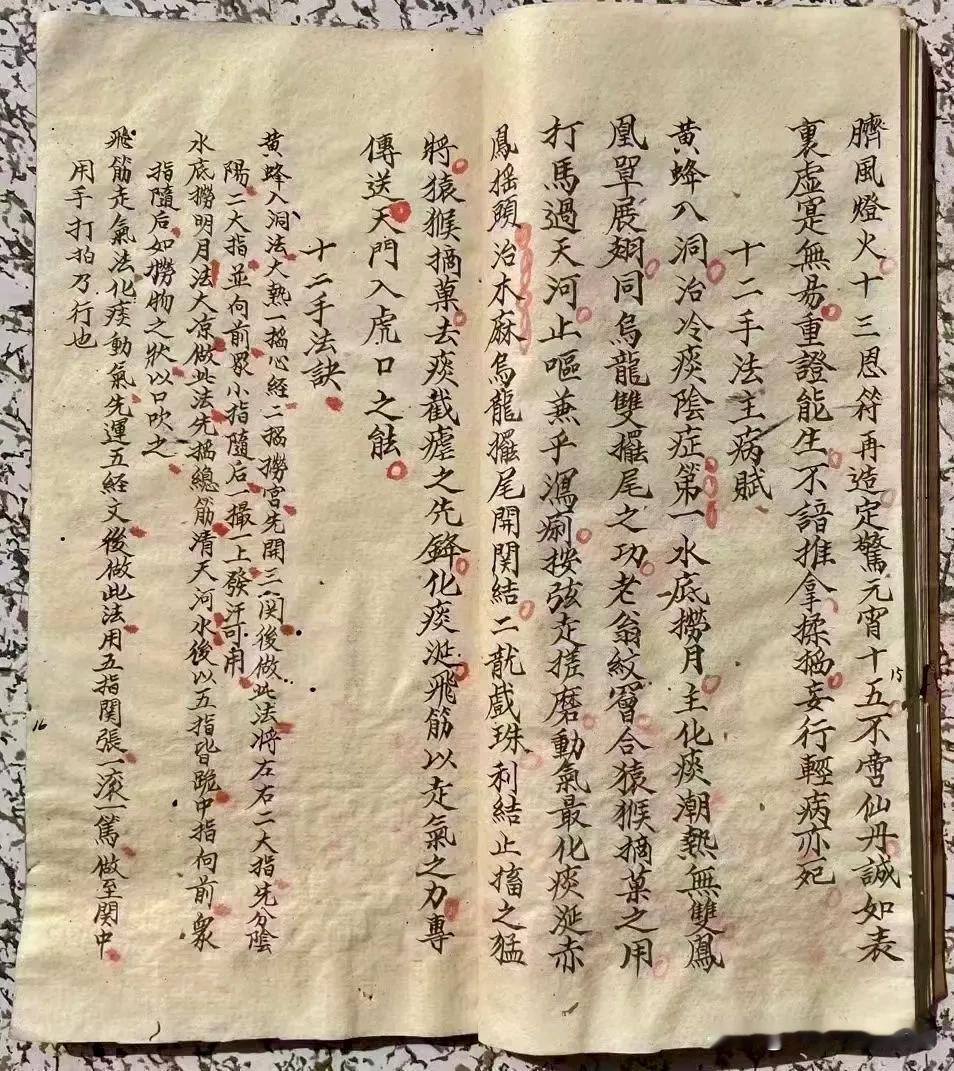 臍風燈火十三恩符再造定驚元宵十五不啻仙丹誠如表
裏虛寔無昜重證能生不諳推拿揉掐妄行輕病亦死
十二手法主病賦
黃蜂入洞治冷痰陰症第一水底撈月主化痰潮熱無雙鳳
凰單展翅同烏龍雙擺尾之功老翁紋罾合猿猴摘菓之用
打馬過天河止嘔兼乎瀉痢按弦走搓磨動氣最化痰涎亦
鳳摇頭治木麻烏龍擺尾開関結二龍戲珠利結止搐之猛
將猿猴摘菓去痰截瘧之先鋒化痰涎飛筋以走氣之力專
傳送天門入虎口之能
十二手法訣
黃蜂入洞法大熱一掐心經二掐撈宮先開三関後做此法將左右二大指先分陰
陽二大指並向前眾小指隨后一撮一上發汗可用
水底撈明月法大凉做此法先掐總筋清天河水後以五指皆跪中指向前眾
指隨后如撈物之狀以口吹之
飛筋走氣法化痰動氣先運五經文後做此法用五指関張一滚一篤做至関中
用手打拍乃行也
15
16